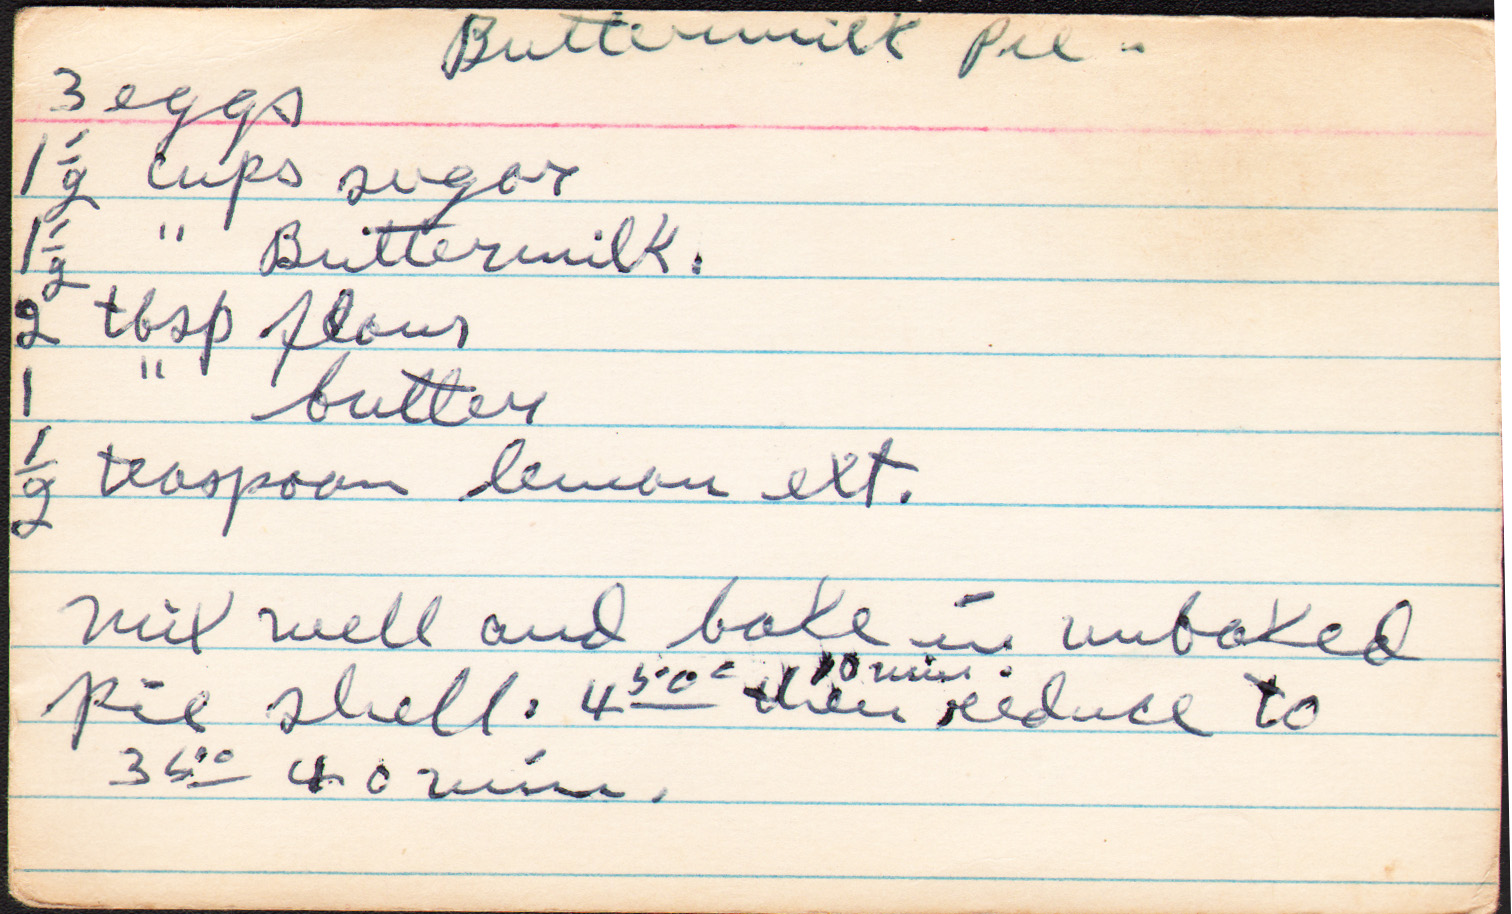 Buttermilk Pie -
3 eggs
1 1/2 cups sugar
1 1/2 " Buttermilk.
2 tbsp flour
1 " butter
1/2 teaspoon lemon ext.
Mix well and bake in unbaked
10 min.
pie shell. 450° then reduce to
350° 40 min.